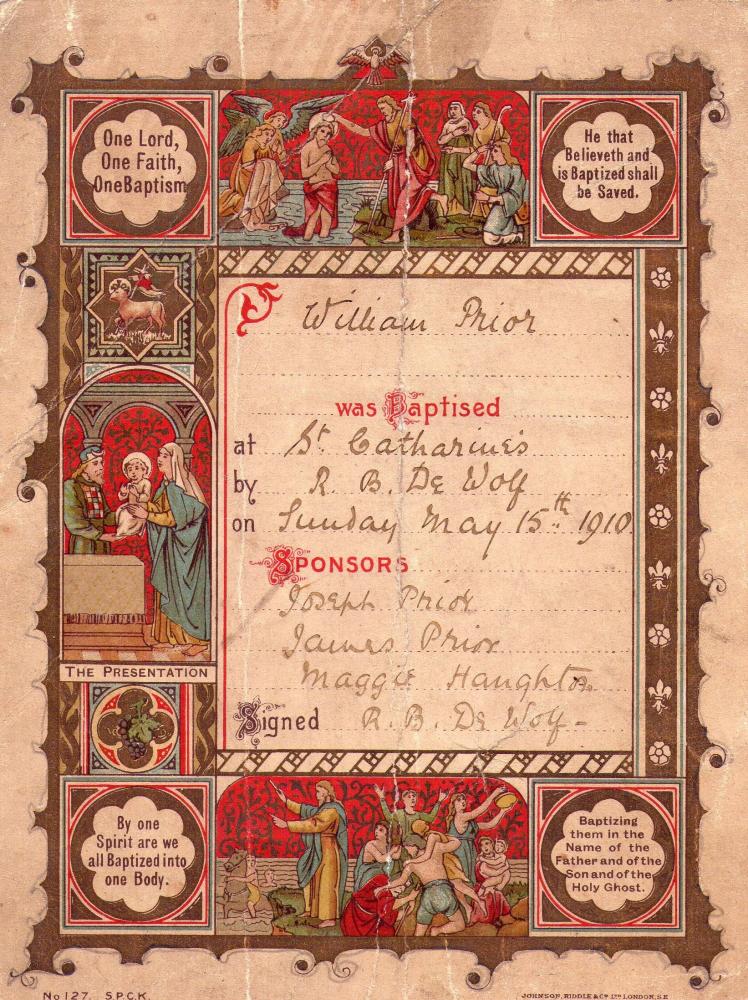 One Lord,
One Faith,
One Baptism
He that
Believeth and
is Baptized shall
be Saved.
William Prior
was Baptised
at St Catharines
by R. B. De Wolf
on Sunday May 15th 1910
SPONSORS
Joseph Prior
James Prior
Maggie Haughton
Signed R. B. De Wolf -
THE PRESENTATION
By one
Spirit are we
all Baptized into
one Body.
Baptizing
them in the
Name of the
Father and of the
Son and of the
Holy Ghost.
No 127. S.P.C.K.
JOHNSON, RIDDLE & Co LTD LONDON, S.E